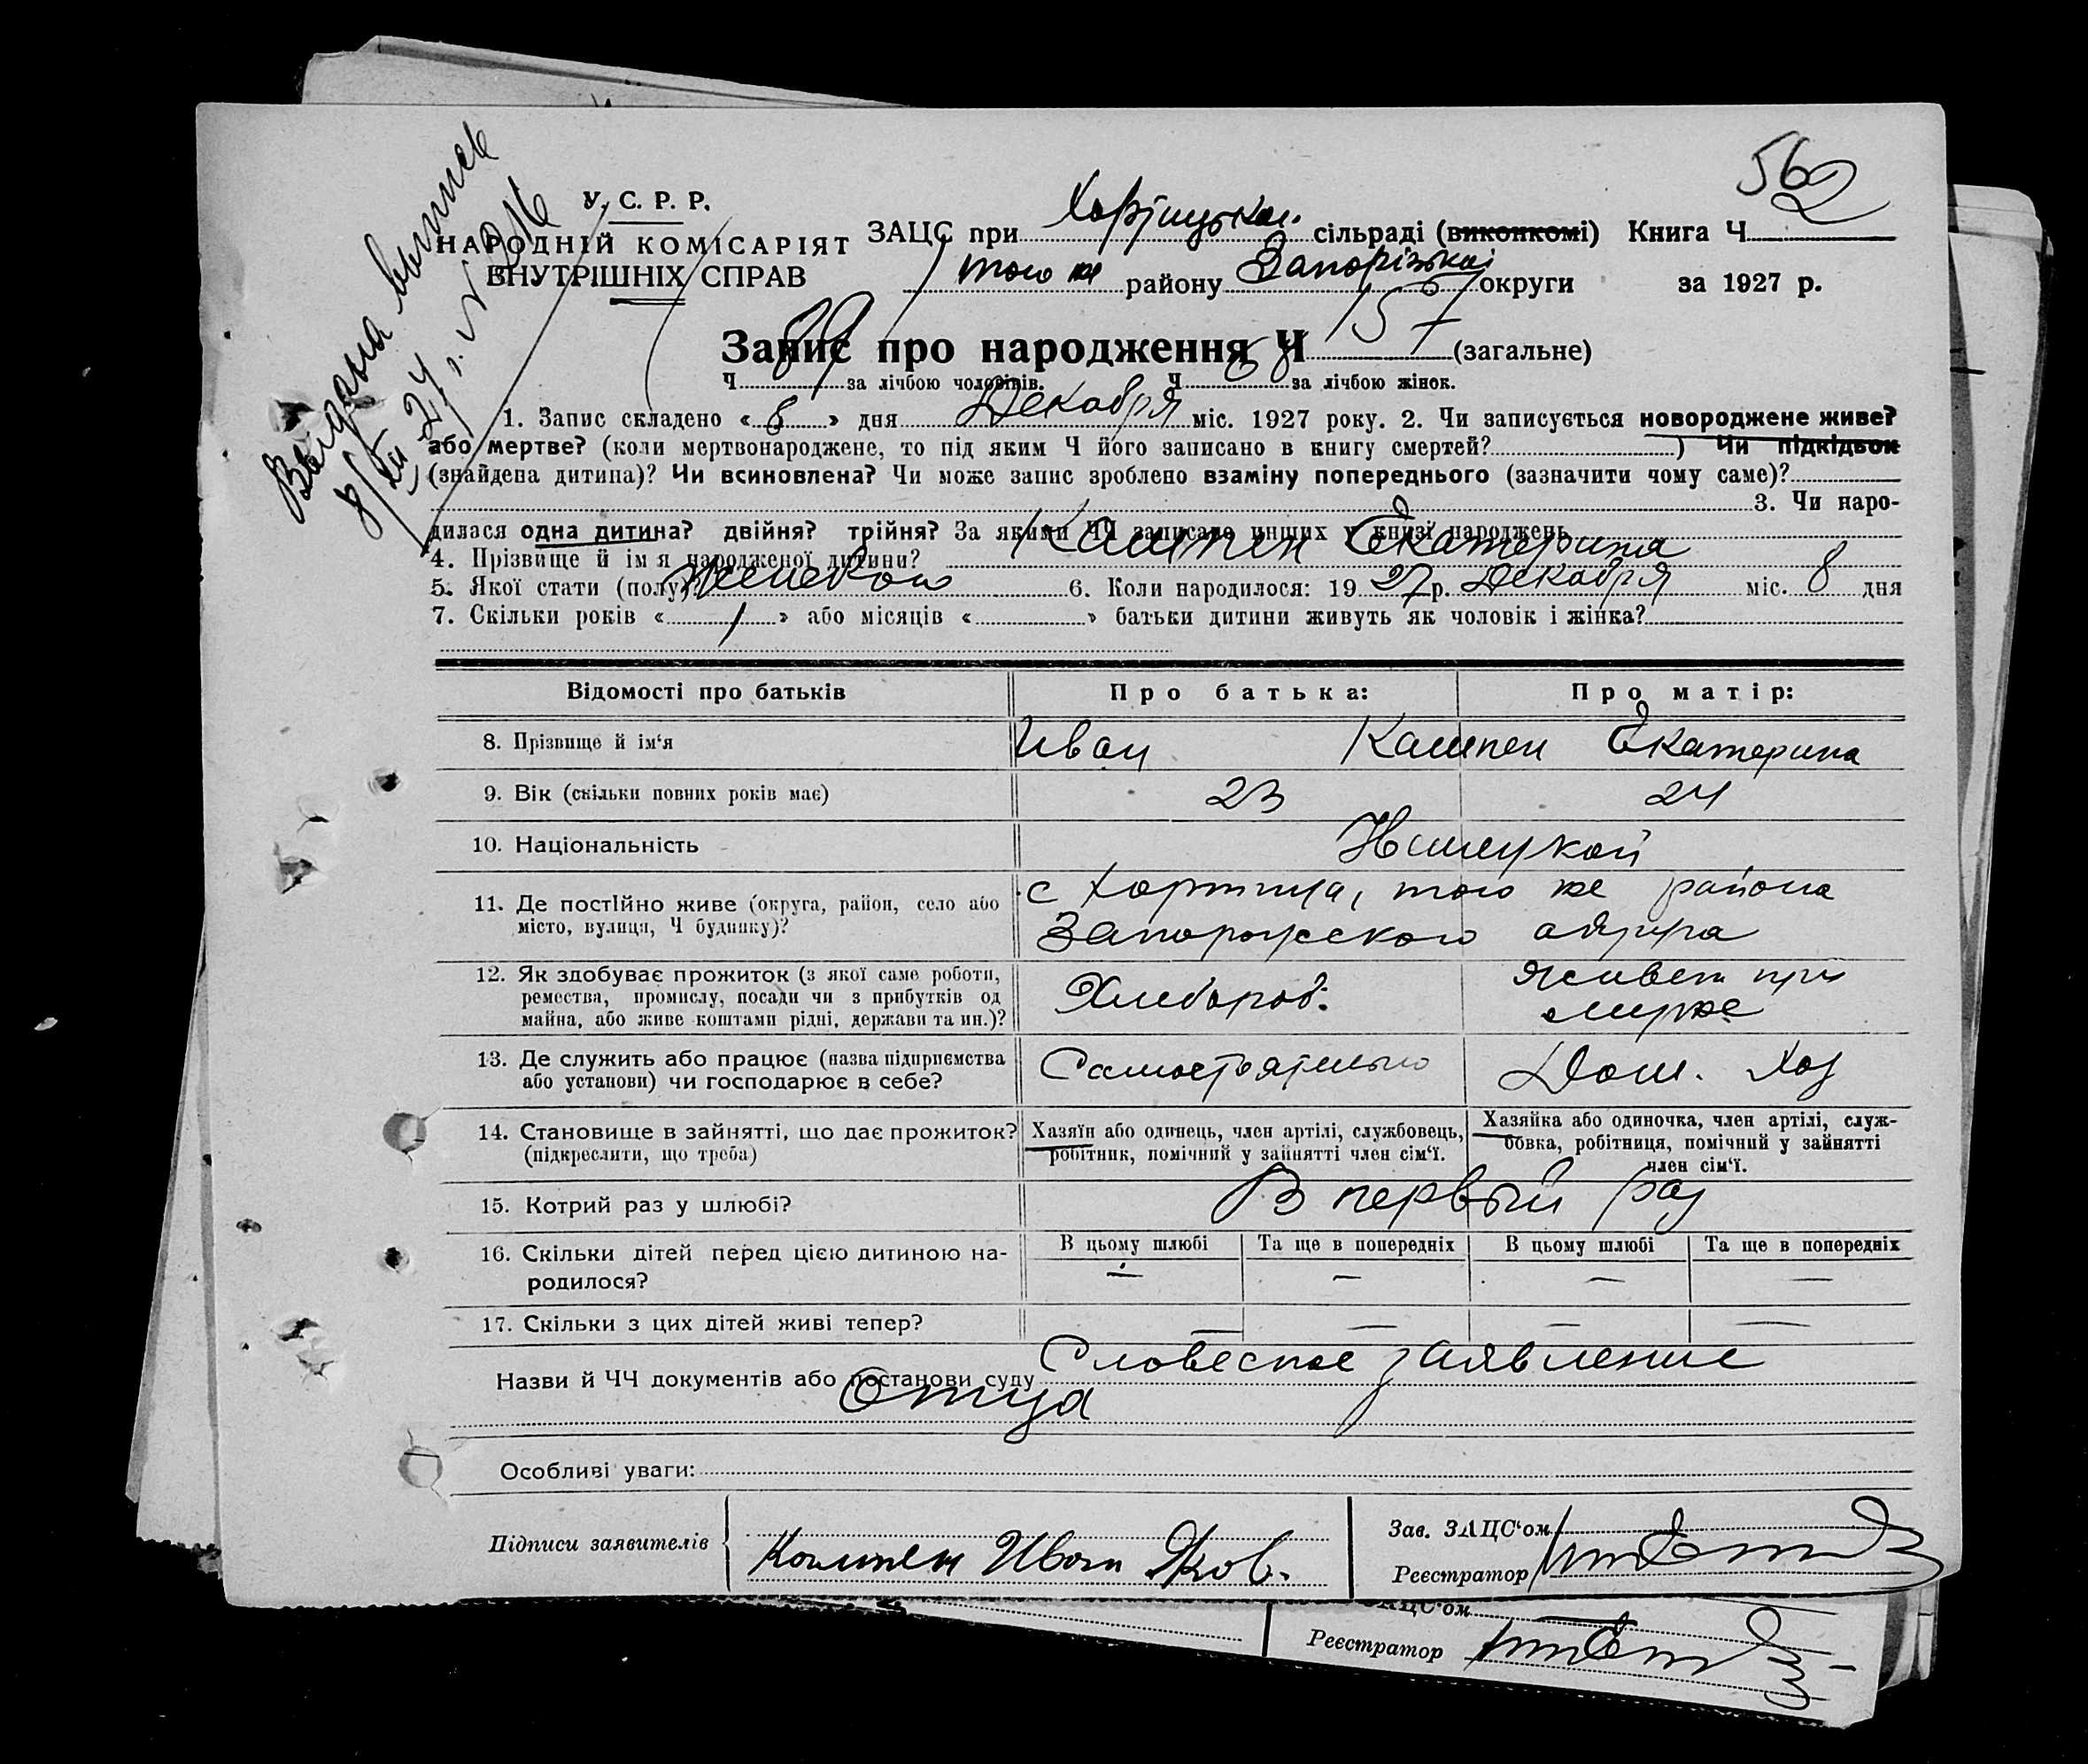 562
Выдана выпись
8/XII 27 г. № 216
У. С. Р. Р.
НАРОДНІЙ КОМІСАРІЯТ
ВНУТРІШНІХ СПРАВ
ЗАЦС при сільраді (виконкомі) Книга Ч
того же району Запорізької округи за 1927 р.
Запис про народження Ч 157 (загальне)
Ч 89 за лічбою чоловіків. Ч 68 за лічбою жінок.
1. Запис складено « 8 » дня Декабря міс. 1927 року. 2. Чи записується новороджене живе?
або мертве? (коли мертвонароджене, то під яким Ч його записано в книгу смертей? ) Чи підкідьок
(знайдена дитина)? Чи всиновлена? Чи може запис зроблено взаміну попереднього (зазначити чому саме)?
3. Чи наро-
дилася одна дитина? двійня? трійня? За якими ЧЧ записано инших у книзі народжень
4. Прізвище й ім'я народженої дитини? Кампен Екатерина
5. Якої стати (полу)? женского 6. Коли народилося: 1927 р. Декабря міс. 8 дня
7. Скільки років « 1 » або місяців « » батьки дитини живуть як чоловік і жінка?
Відомості про батьків Про батька: Про матір:
8. Прізвище й ім'я Иван Кампен Екатерина
9. Вік (скільки повних років має) 23 24
10. Національність Немецкой
11. Де постійно живе (округа, район, село або с Хортица, того же района
місто, вулиця, Ч будинку)? Запорожского округа
12. Як здобуває прожиток (з якої саме роботи, Живет при
ремества, промислу, посади чи з прибутків од Хлебороб. муже
майна, або живе коштами рідні, держави та ин.)?
13. Де служить або працює (назва підприємства Самостоятельно Дом. Хоз
або установи) чи господарює в себе?
14. Становище в зайнятті, що дає прожиток? Хазяїн або одинець, член артілі, службовець, Хазяйка або одиночка, член артілі, служ-
(підкреслити, що треба) робітник, помічний у зайнятті член сім'ї. бовка, робітниця, помічний у зайнятті
член сім'ї.
15. Котрий раз у шлюбі? В первый раз
16. Скільки дітей перед цією дитиною на- В цьому шлюбі Та ще в попередніх В цьому шлюбі Та ще в попередніх
родилося? — — — —
17. Скільки з цих дітей живі тепер? — — — —
Назви й ЧЧ документів або постанови суду Словесное заявление
Отца
Особливі уваги:
Підписи заявителів Кампен Иван Яков.
Зав. ЗАЦС'ом
Реєстратор
ЗАЦС'ом
Реєстратор